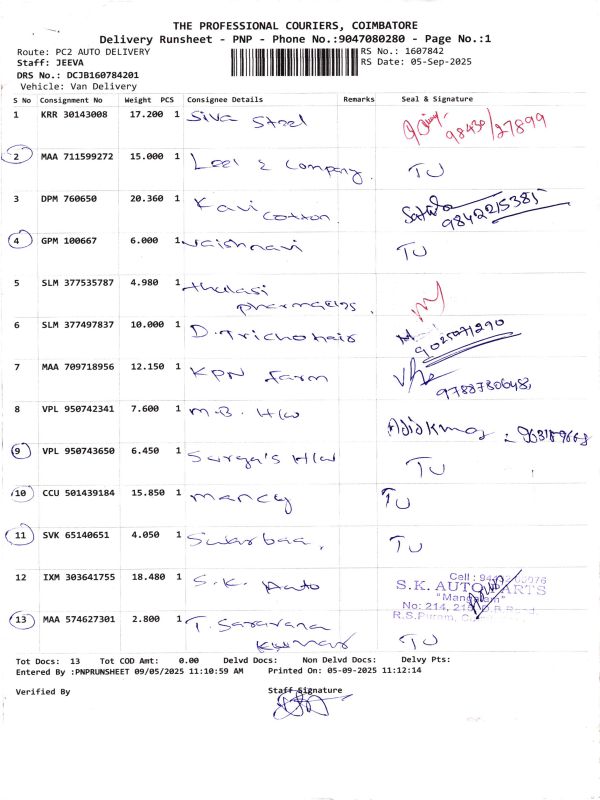 THE PROFESSIONAL COURIERS, COIMBATORE
Delivery Runsheet - PNP - Phone No.:9047080280 - Page No.:1
Route: PC2 AUTO DELIVERY RS No.: 1607842
Staff: JEEVA RS Date: 05-Sep-2025
DRS No.: DCJB160784201
Vehicle: Van Delivery
S No Consignment No Weight PCS Consignee Details Remarks Seal & Signature
1 KRR 30143008 17.200 1 Siva Steel 98430/27899
2 MAA 711599272 15.000 1 Leel & Company. TU
3 DPM 760650 20.360 1 Kavi Cotton. 9842215385
4 GPM 100667 6.000 1 Vaishnavi TU
5 SLM 377535787 4.980 1 thulasi
6 SLM 377497837 10.000 1 D. Trichohair
7 MAA 709718956 12.150 1 KPN farm
8 VPL 950742341 7.600 1 M.B. H/W
9 VPL 950743650 6.450 1 Surya's H/W TU
10 CCU 501439184 15.850 1 mancy TU
11 SVK 65140651 4.050 1 TU
12 IXM 303641755 18.480 1 S.K. Auto
S.K. AUTO PARTS
No: 214,
R.S.Puram,
13 MAA 574627301 2.800 1 T. Saravana Kumar TU
Tot Docs: 13 Tot COD Amt: 0.00 Delvd Docs: Non Delvd Docs: Delvy Pts:
Entered By :PNPRUNSHEET 09/05/2025 11:10:59 AM Printed On: 05-09-2025 11:12:14
Verified By Staff Signature